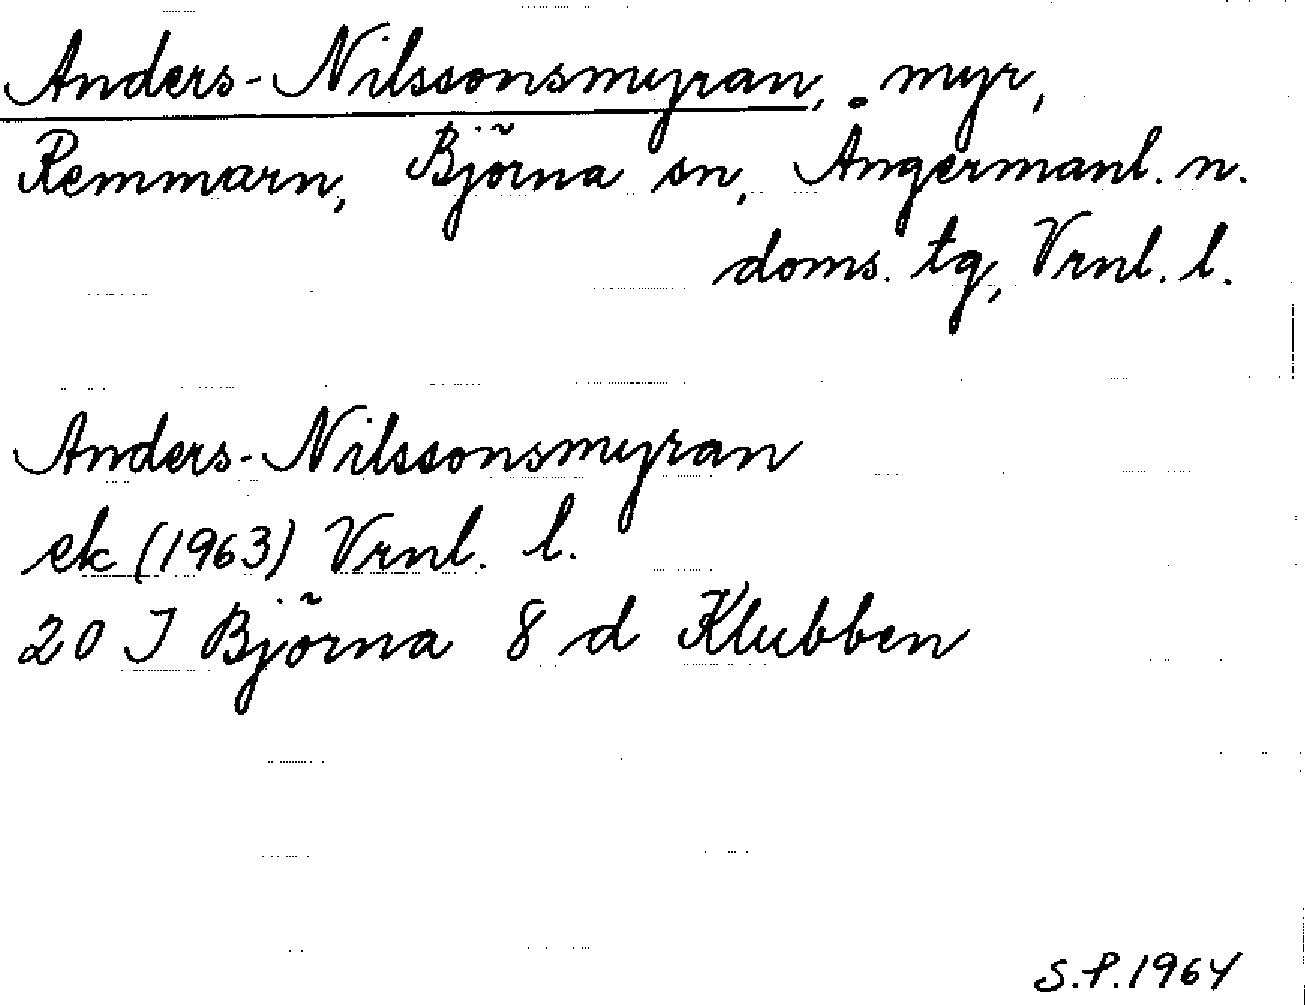 Anders-Nilssonsmyran, myr,
Remmarn, Björna sn, Ångermanl. n.
doms. tg, Vrnl. l.
Anders-Nilssonsmyran
ek (1963) Vrnl. l.
20 I Björna 8 d Klubben
S.P. 1964